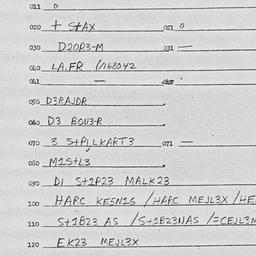 011 0
020 + S+AX 021 0
030 D20R3-M 031 —
040 LA,FR
041 —
050 D3RAJDR
060 D3 BOU3-R
070 3 S+PILKART3 071 —
080 M1S+L3
090 DI S+1R23 MALK23
100 HARC KE5N26 /HARC MEJL3X /HE
110 S+1B23 AS /S+1B23NAS /=CEJL3M
120 EK23 MEJL3X